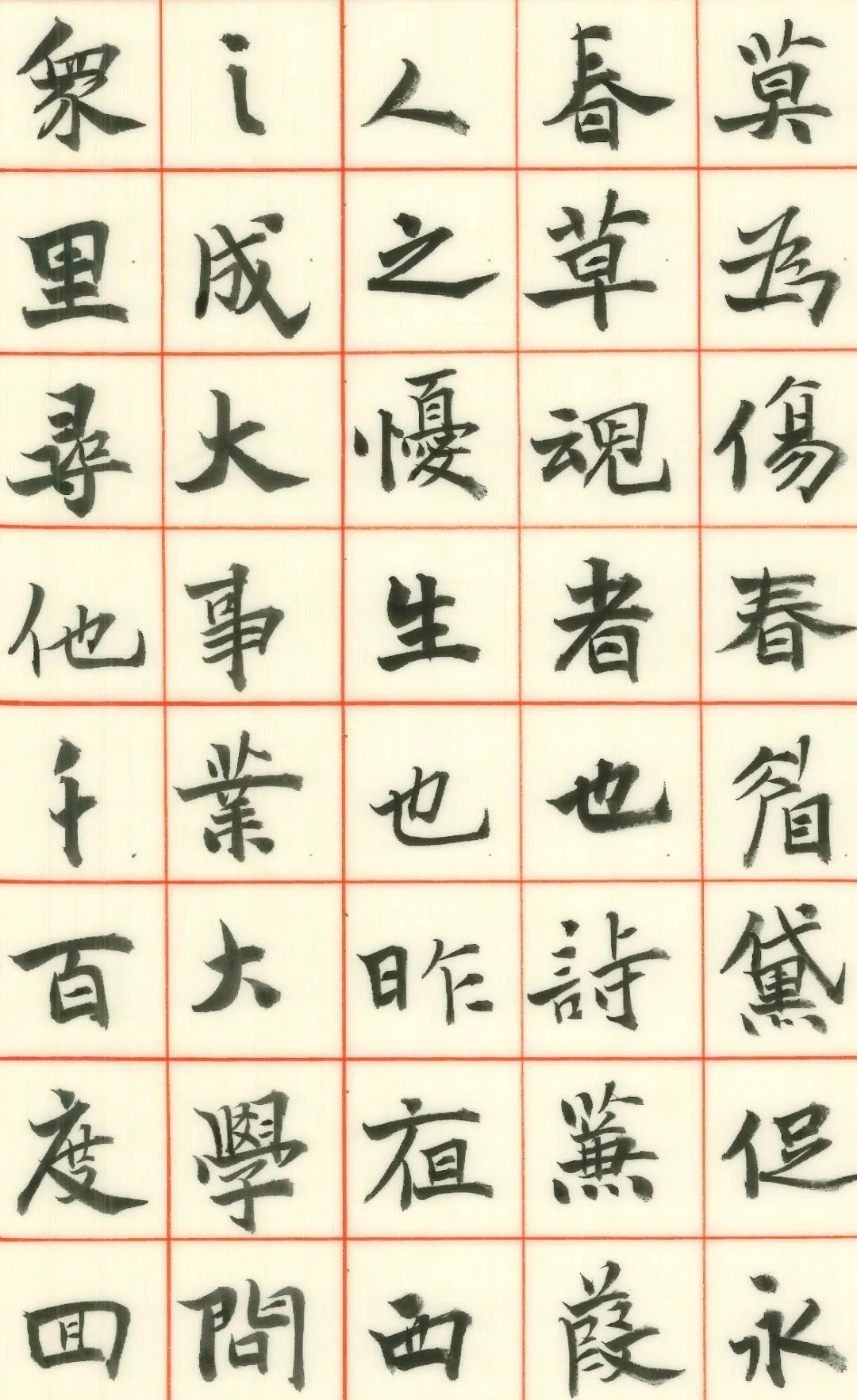 莫為傷春眉黛促永
春草魂者也詩蒹葭
人之懮生也昨夜西
之成大事業大學問
衆里尋他千百度回